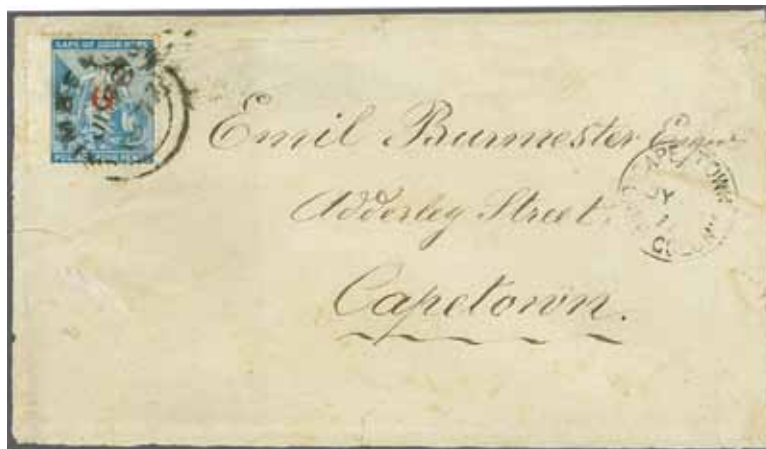 CAPE OF GOOD HOPE
G
Emil Burmester Esqre
Adderley Street
Capetown.
CAPE TOWN
JY